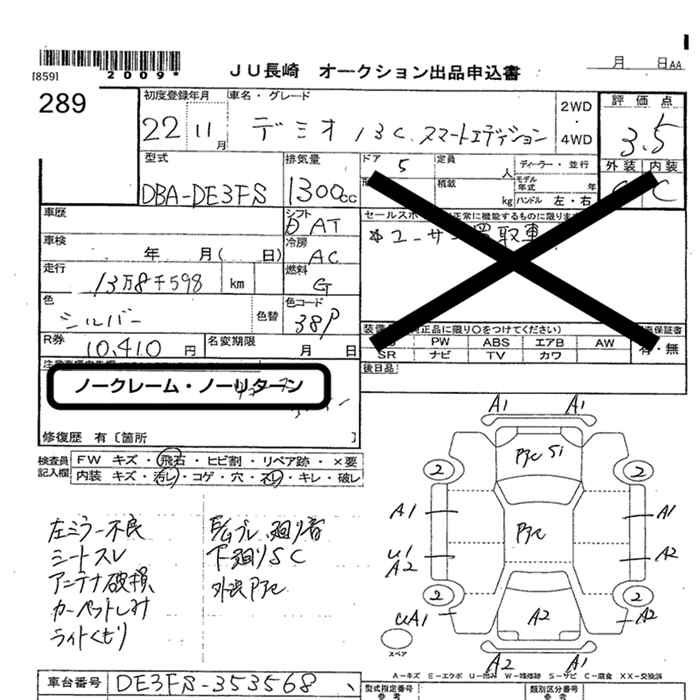 [859]
2009*
JU長崎 オークション出品申込書
月 日AA
289
初度登録年月
車名・グレード
2WD
・
4WD
評価点
22 11月
デミオ 13C.スマートエディション
3.5
型式
排気量
ドア 5
定員
人
ディーラー・並行
外装 内装
DBA-DE3FS
1300cc
積載
kg
モデル年式 年
ハンドル 左・右
C
車歴
シフト
AT
セールスポ
正常に機能するものに限りま
車検
年 月( 日)
冷房
AC
走行
13万8千598 km
燃料
G
色
シルバー
色替
色コード
38P
装備
純正品に限り○をつけてください)
保証書
R券
10,410 円
名変期限
月 日
PW ABS エアB AW
SR ナビ TV カワ
有・無
後日品
ノークレーム・ノーリターン
修復歴 有〔箇所 〕
検査員記入欄
FW キズ・飛石・ヒビ割・リペア跡・×要
内装 キズ・汚レ・コゲ・穴・スレ・キレ・破レ
左ミラー不良
シートスレ
アンテナ破損
カーペットしみ
ライトくもり
下廻りSC
A1 A1
2 2
A1 A1
U1
A2
A2
2 2
UA1
A2
A2
A2 A1
スペア
A-キズ E-エクボ U-凹み W-補修跡 S-サビ C-腐食 XX-交換済
車台番号
DE3FS-353568
型式指定番号
参考
類別区分番号
参考